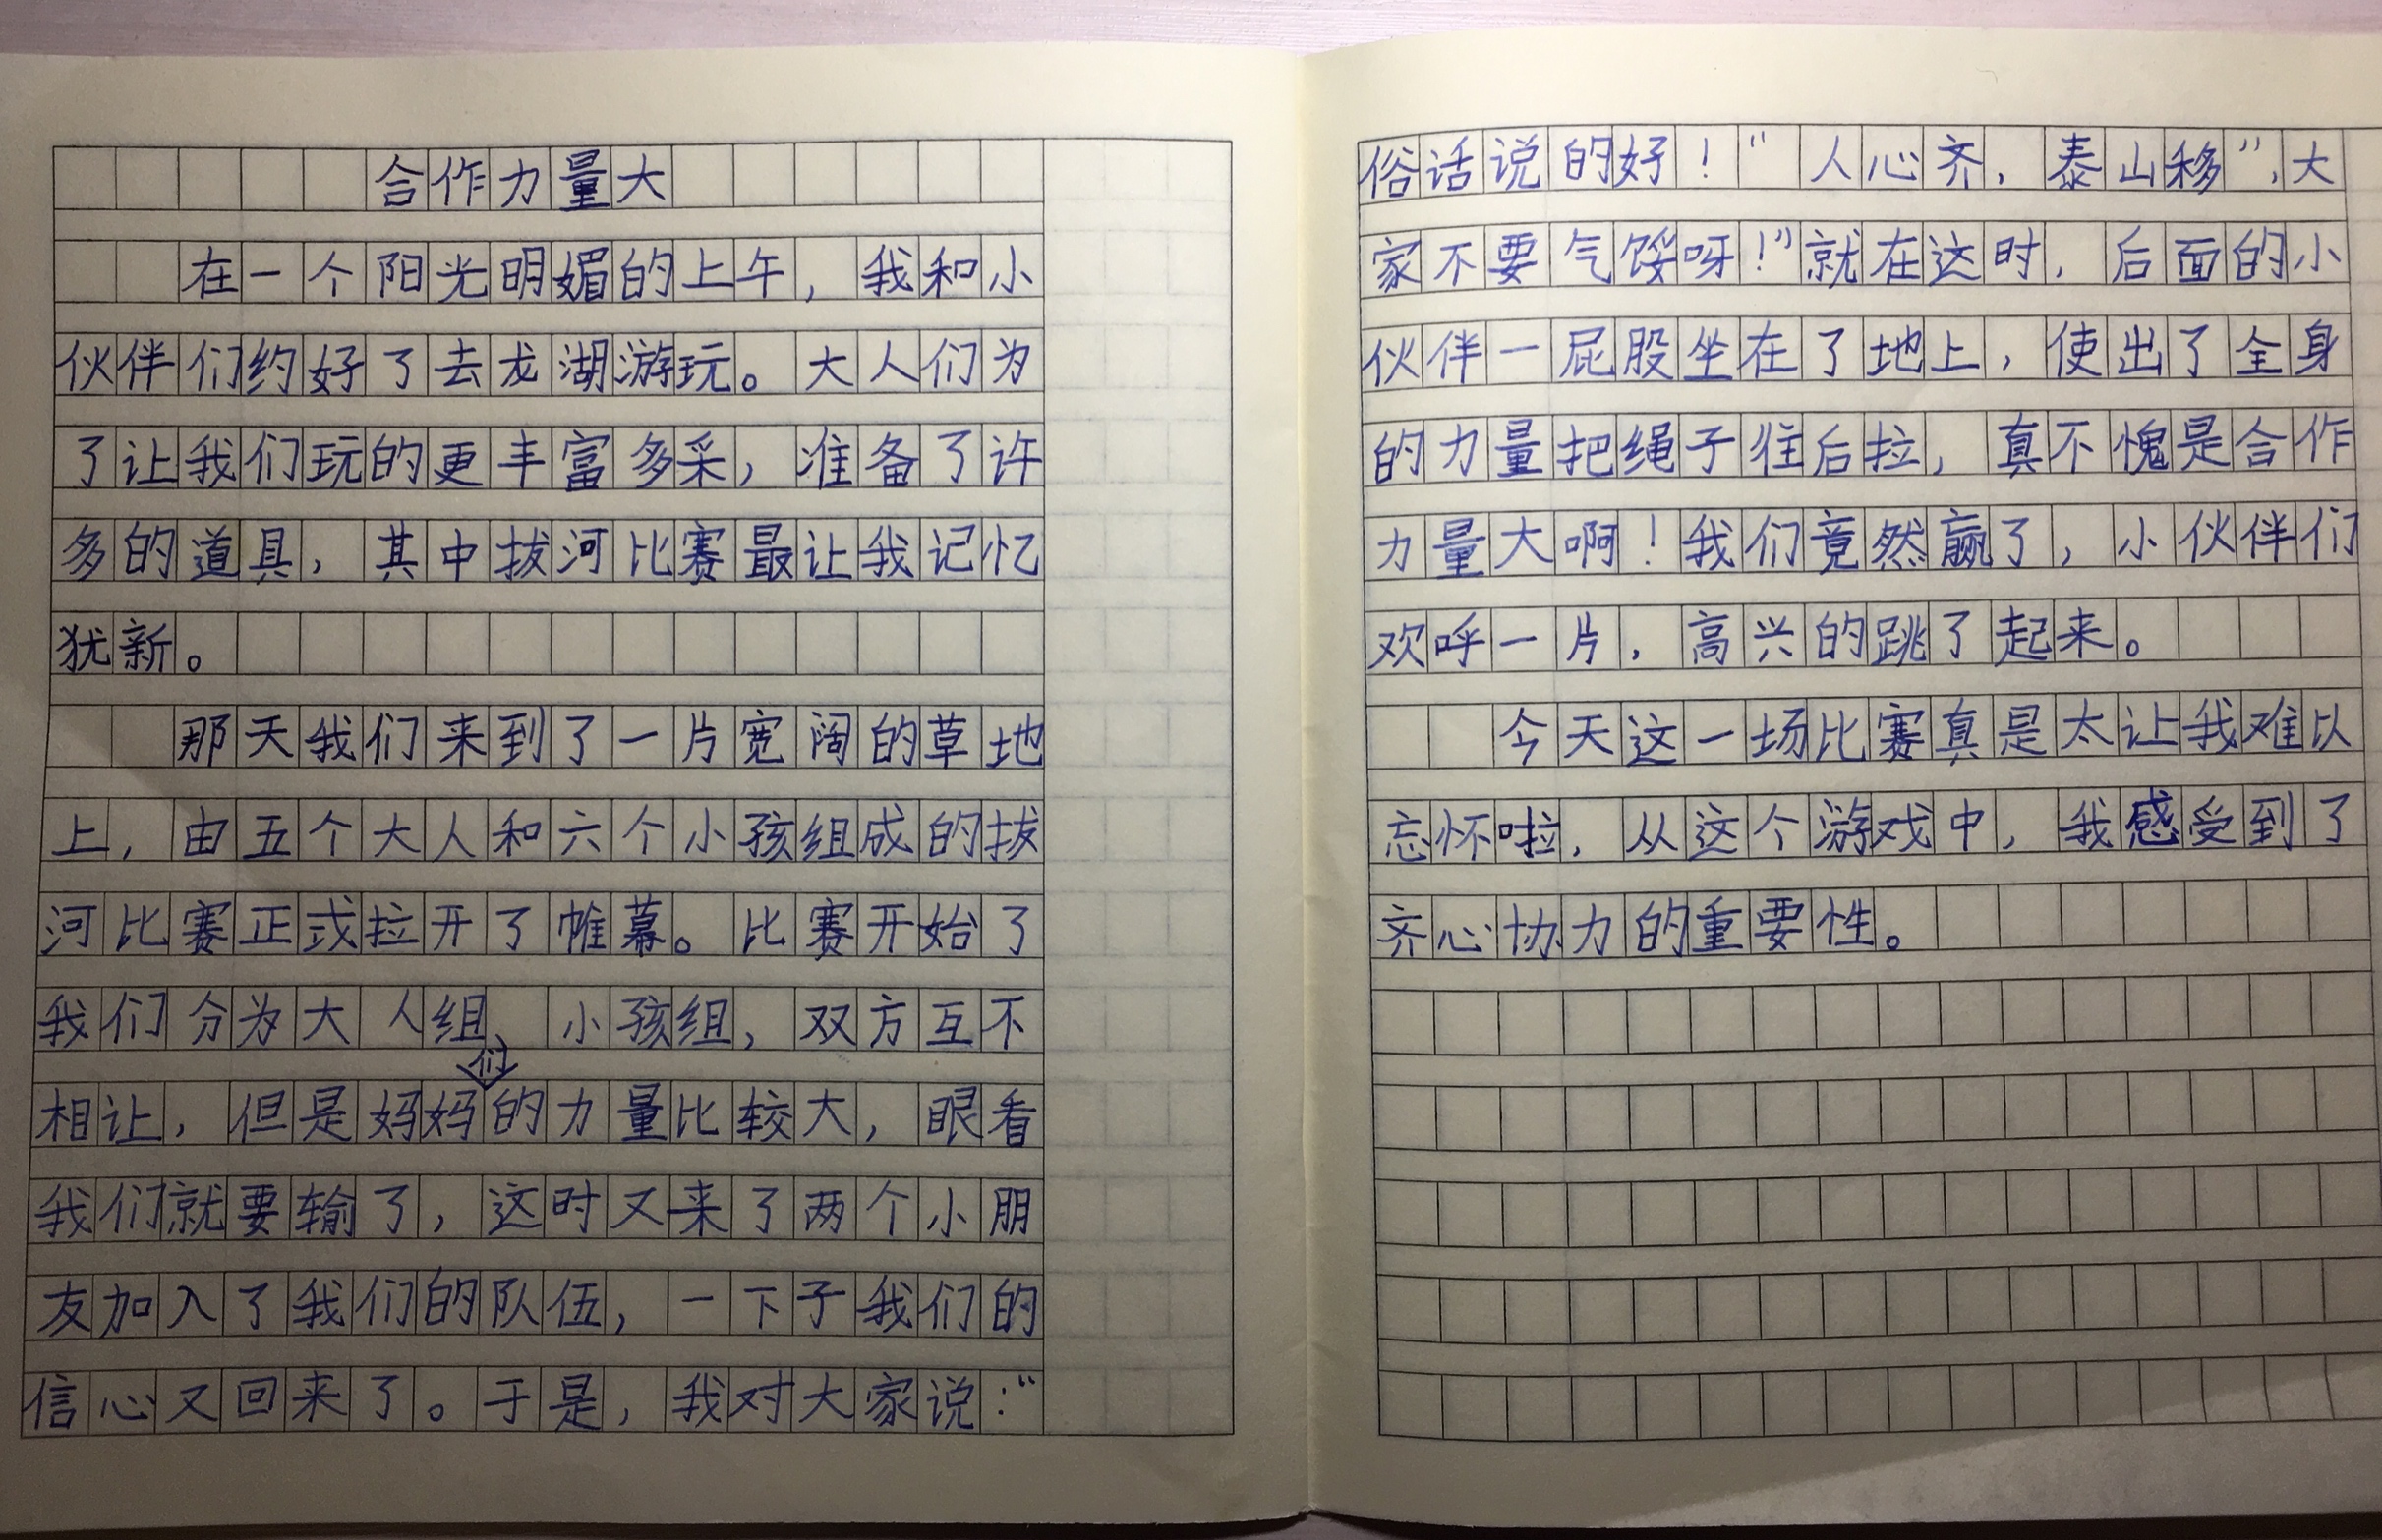 合作力量大
在一个阳光明媚的上午，我和小
伙伴们约好了去龙湖游玩。大人们为
了让我们玩的更丰富多采，准备了许
多的道具，其中拔河比赛最让我记忆
犹新。
那天我们来到了一片宽阔的草地
上，由五个大人和六个小孩组成的拔
河比赛正式拉开了帷幕。比赛开始了
我们分为大人组、小孩组，双方互不
相让，但是妈妈们的力量比较大，眼看
我们就要输了，这时又来了两个小朋
友加入了我们的队伍，一下子我们的
信心又回来了。于是，我对大家说：“
俗话说的好！“人心齐，泰山移”，大
家不要气馁呀！”就在这时，后面的小
伙伴一屁股坐在了地上，使出了全身
的力量把绳子往后拉，真不愧是合作
力量大啊！我们竟然赢了，小伙伴们
欢呼一片，高兴的跳了起来。
今天这一场比赛真是太让我难以
忘怀啦，从这个游戏中，我感受到了
齐心协力的重要性。